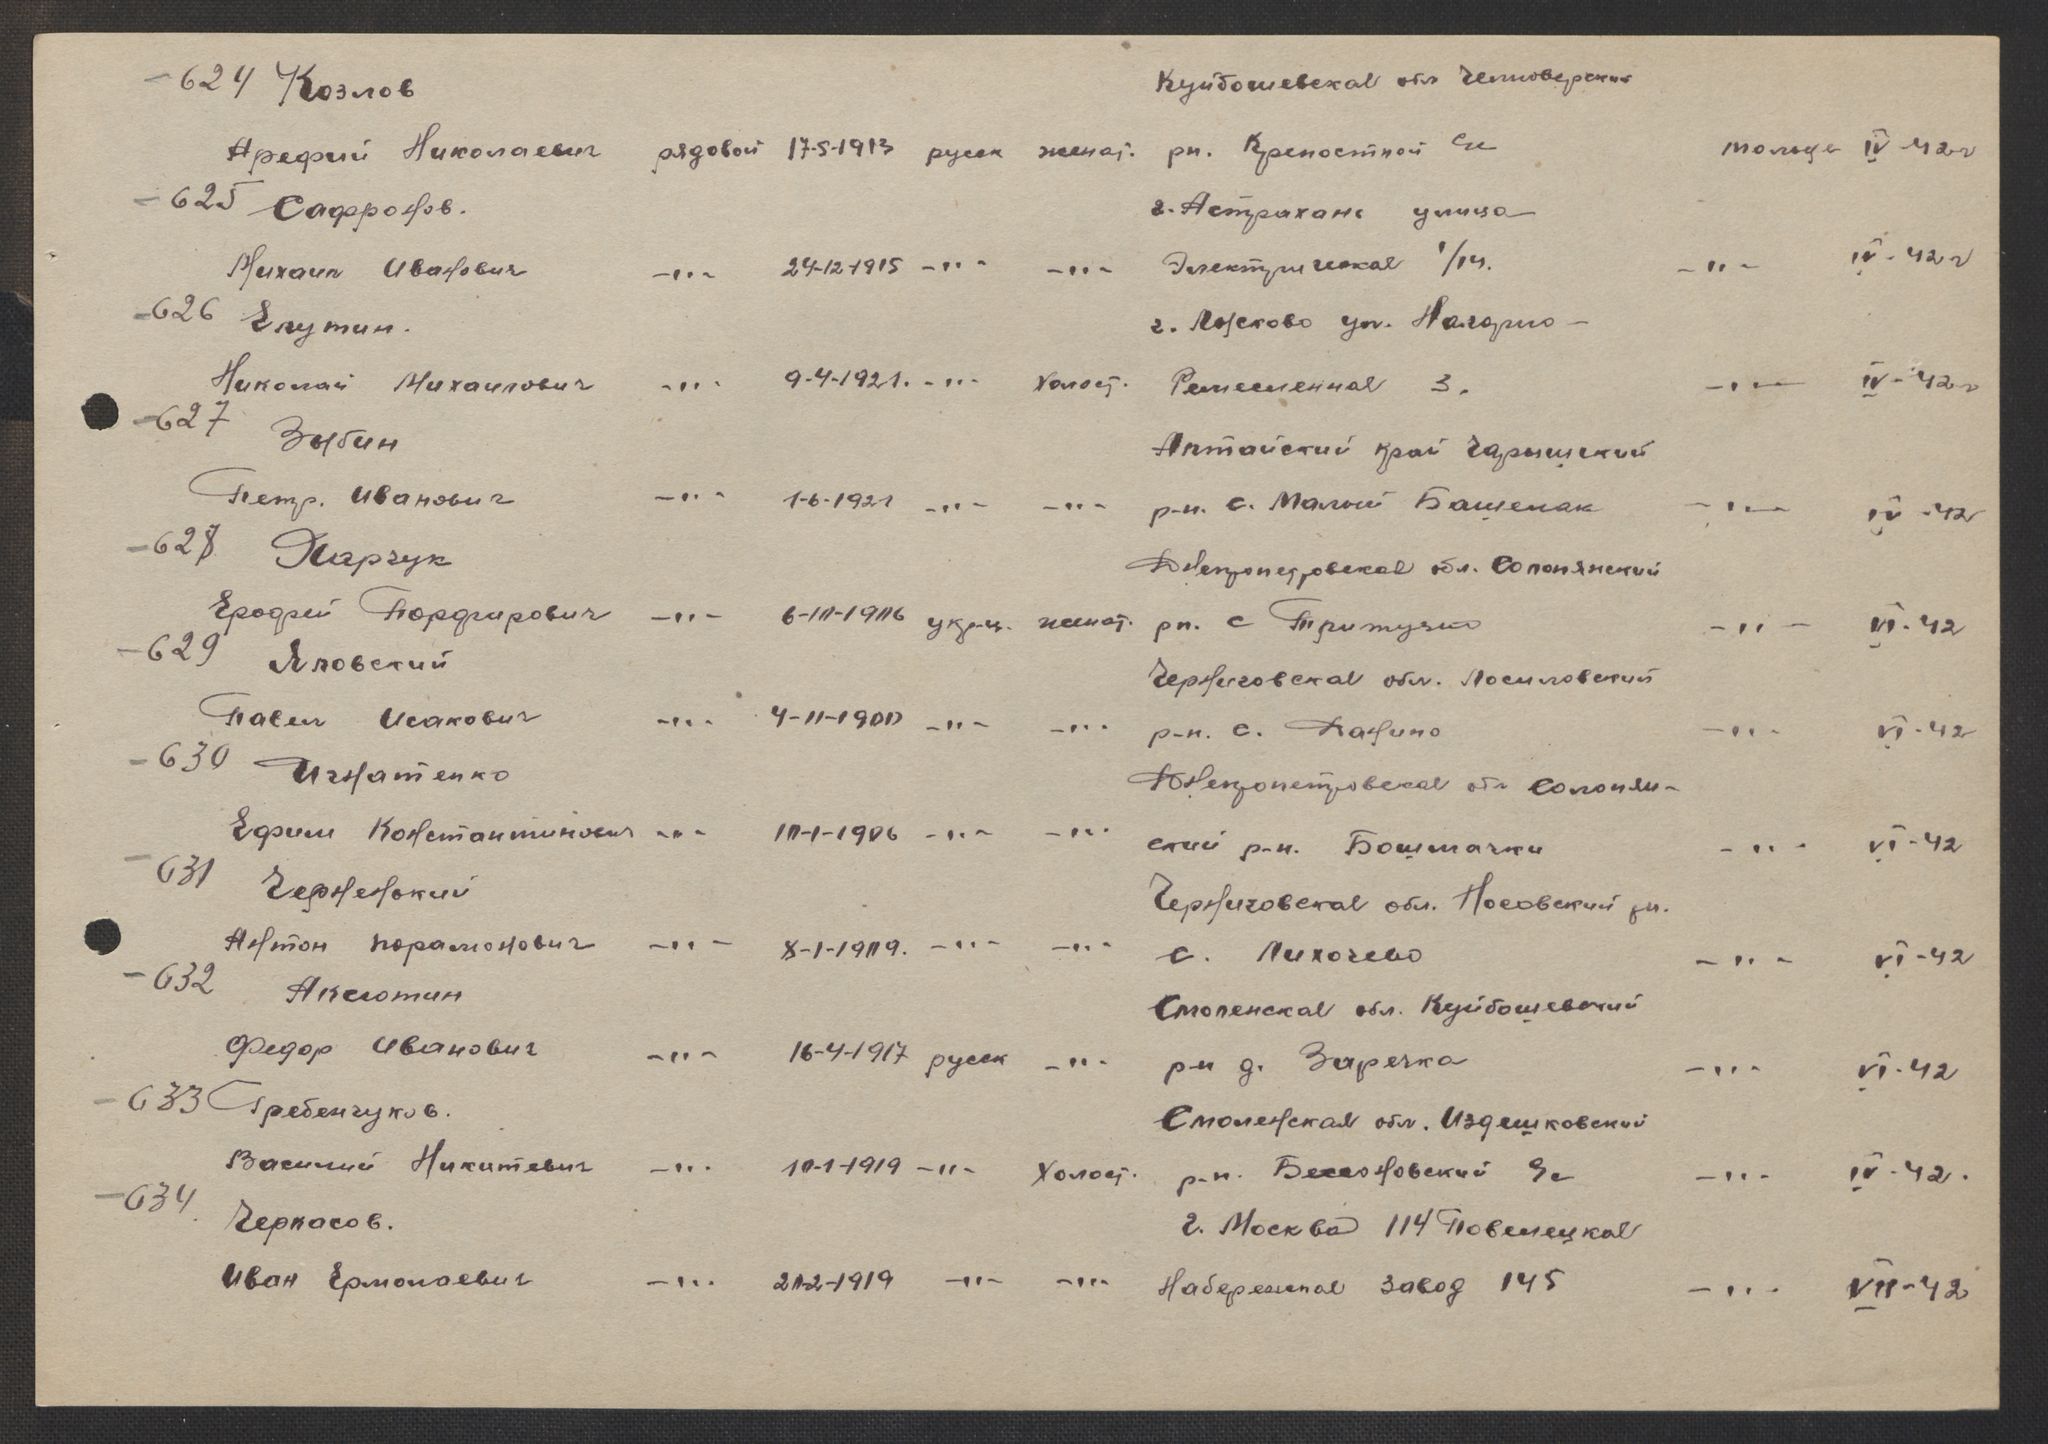 -624 Козлов Куйбошевская обл
Арефий Николаевич рядовой 17-5-1913 русск женат. рн. Крепостной с/с IV-42г
-625 Сафронов. г. Астрахань улица
Михаил Иванович -"- 24-12-1915 -"- -"- Электрическая 1/14. -"- IV-42г
-626 Елутин. ул. Нагорно-
Николай Михаилович -"- 9-4-1921. -"- холост. Ремесленная 3. -"- IV-42г
-627 Зыбин Алтайский край Чарышский
Петр. Иванович -"- 1-6-1921 -"- -"- р-н. с. Малый Бащелак -"- IV-42
-628 Харчук Днепропетровская обл. Солонянский
Ерофей Порфирович -"- 6-10-1906 укр-ц. женат. рн. с Притузно -"- VI-42
-629 Яловский Черниговская обл. Лосиловский
Павел Исакович -"- 4-11-1900 -"- -"- р-н. с. Данино -"- VI-42
-630 Игнатенко Днепропетровская обл Солонян-
Ефим Константинович -"- 10-1-1906 -"- -"- ский р-н. Бошмачки -"- VI-42
-631 Черненький Черниговская обл. Носовский рн.
Антон порамонович -"- 8-1-1909. -"- -"- с. Лихочево -"- VI-42
-632 Аксютин Смоленская обл. Куйбошевский
Федор Иванович -"- 16-4-1917 русск -"- р-н д. Заречка -"- VI-42
-633 Гребенчуков. Смоленская обл. Издешковский
Василий Никитевич -"- 10-1-1919 -"- Холост. р-н. Бессоновский с/с -"- IV-42.
-634 Черкасов. г. Москва 114 Повелецкая
Иван Ермолаевич -"- 20-2-1919 -"- -"- Набережная завод 145 -"- VII-42